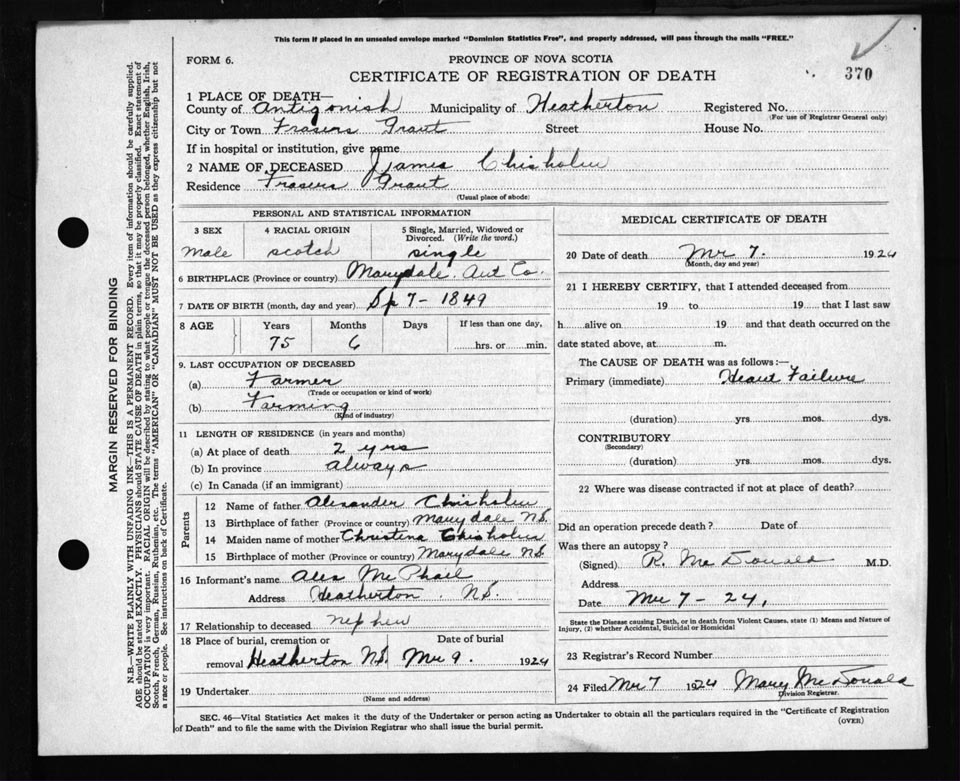 This form if placed in an unsealed envelope marked "Dominion Statistics Free", and properly addressed, will pass through the mails "FREE."
FORM 6.
PROVINCE OF NOVA SCOTIA
CERTIFICATE OF REGISTRATION OF DEATH
370
1 PLACE OF DEATH—
County of Antigonish Municipality of Heatherton Registered No.
(For use of Registrar General only)
City or Town Frasers Grant Street House No.
If in hospital or institution, give name
2 NAME OF DECEASED James Chisholm
Residence Frasers Grant
(Usual place of abode)
PERSONAL AND STATISTICAL INFORMATION
3 SEX 4 RACIAL ORIGIN 5 Single, Married, Widowed or Divorced. (Write the word.)
Male scotch single
6 BIRTHPLACE (Province or country) Marydale. Ant Co.
7 DATE OF BIRTH (month, day and year) Sp 7 - 1849
8 AGE Years Months Days If less than one day,
75 6 hrs. or min.
9. LAST OCCUPATION OF DECEASED
(a) Farmer
(Trade or occupation or kind of work)
(b) Farming
(Kind of industry)
11 LENGTH OF RESIDENCE (in years and months)
(a) At place of death 2 yrs
(b) In province always
(c) In Canada (if an immigrant)
Parents
12 Name of father Alexander Chisholm
13 Birthplace of father (Province or country) Marydale N.S.
14 Maiden name of mother Christina Chisholm
15 Birthplace of mother (Province or country) Marydale N.S
16 Informant's name Alex McPhail
Address Heatherton. N.S.
17 Relationship to deceased nephew
18 Place of burial, cremation or removal Date of burial
Heatherton N.S. Mr 9. 1924
19 Undertaker
(Name and address)
MEDICAL CERTIFICATE OF DEATH
20 Date of death Mr 7. 1924
(Month, day and year)
21 I HEREBY CERTIFY, that I attended deceased from
19 to 19 that I last saw
h alive on 19 and that death occurred on the
date stated above, at m.
The CAUSE OF DEATH was as follows:—
Primary (immediate) Heart Failure
(duration) yrs. mos. dys.
CONTRIBUTORY
(Secondary)
(duration) yrs. mos. dys.
22 Where was disease contracted if not at place of death?
Did an operation precede death? Date of
Was there an autopsy?
(Signed) R. McDonald M.D.
Address
Date 7 - 24,
State the Disease causing Death, or in death from Violent Causes, state (1) Means and Nature of
Injury, (2) whether Accidental, Suicidal or Homicidal
23 Registrar's Record Number
24 Filed Mr 7 1924 Mary McDonald
Division Registrar.
SEC. 46—Vital Statistics Act makes it the duty of the Undertaker or person acting as Undertaker to obtain all the particulars required in the "Certificate of Registration
of Death" and to file the same with the Division Registrar who shall issue the burial permit.
(OVER)
MARGIN RESERVED FOR BINDING
N.B.—WRITE PLAINLY WITH UNFADING INK—THIS IS A PERMANENT RECORD. Every item of information should be carefully supplied.
AGE should be stated EXACTLY. PHYSICIANS should STATE CAUSE OF DEATH in plain terms, so that it may be properly classified. Exact statement of
OCCUPATION is very important. RACIAL ORIGIN will be described by stating to what people or tongue the deceased person belonged, whether English, Irish,
Scotch, French, German, Russian, Ruthenian, etc. The terms "AMERICAN" OR "CANADIAN" MUST NOT BE USED as they express citizenship but not
a race or people. See instructions on back of Certificate.